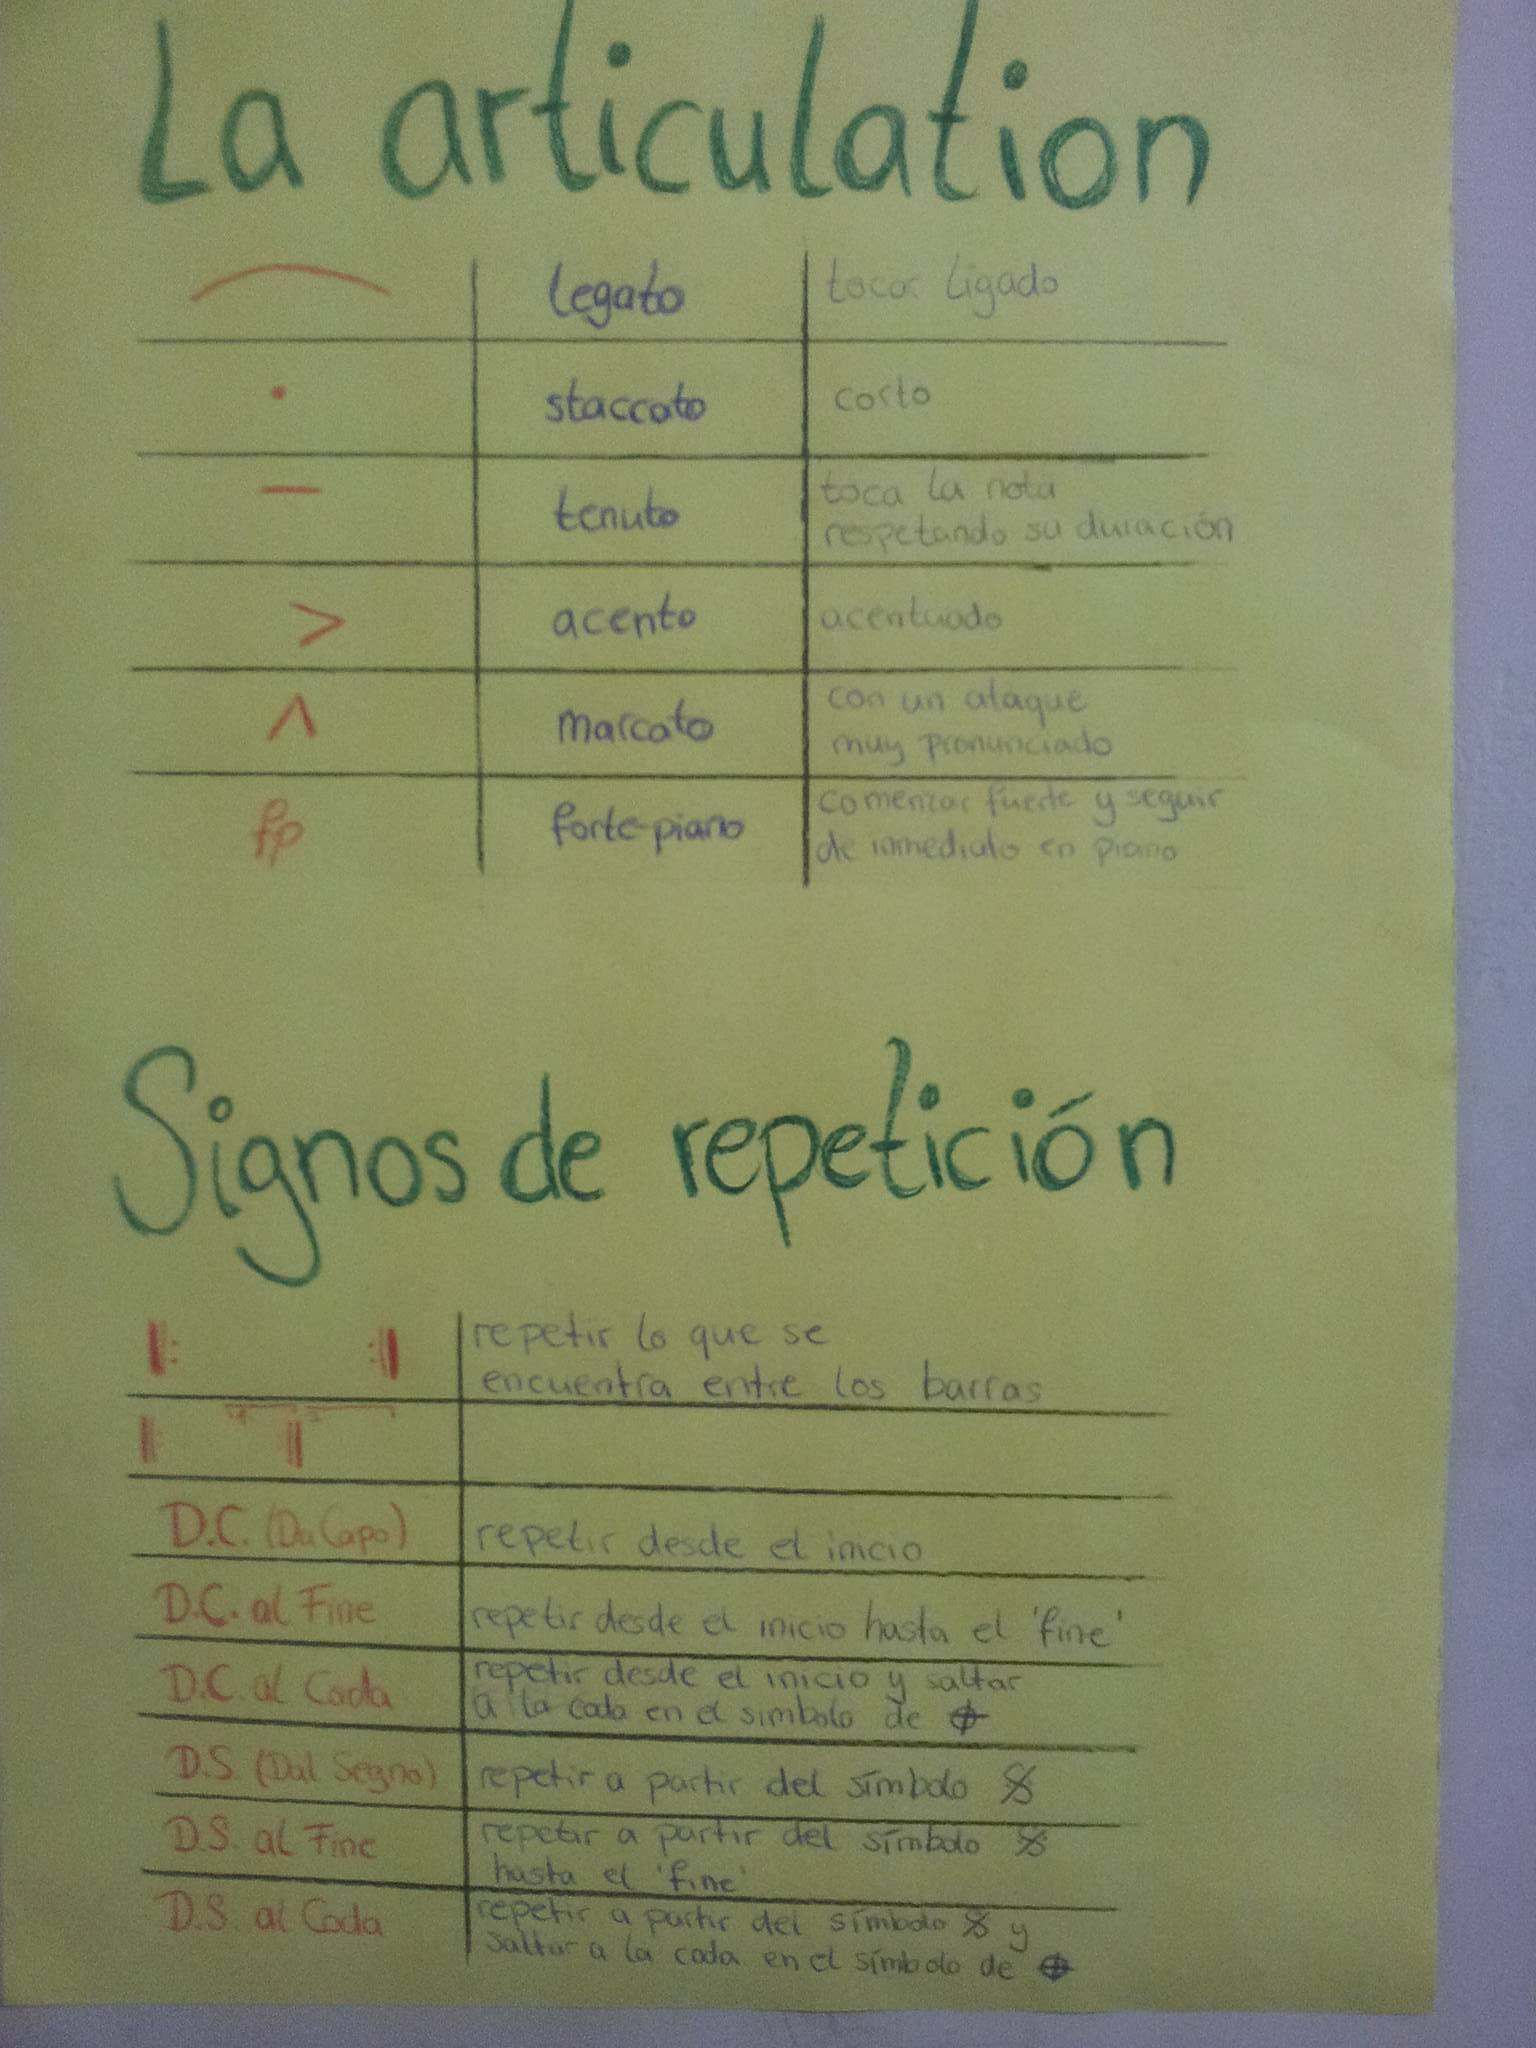 La articulation
legato tocar ligado
staccato corto
tenuto toca la nota
respetando su duración
> acento acentuado
^ marcato con un ataque
muy pronunciado
fp forte-piano comenzar fuerte y seguir
de inmediato en piano
Signos de repetición
repetir lo que se
encuentra entre los barras
D.C. (Da Capo) repetir desde el inicio
D.C. al Fine repetir desde el inicio hasta el 'fine'
D.C. al Coda repetir desde el inicio y saltar
a la coda en el símbolo de
D.S. (Dal Segno) repetir a partir del símbolo
D.S. al Fine repetir a partir del símbolo
hasta el 'fine'
D.S. al Coda repetir a partir del símbolo y
saltar a la coda en el símbolo de